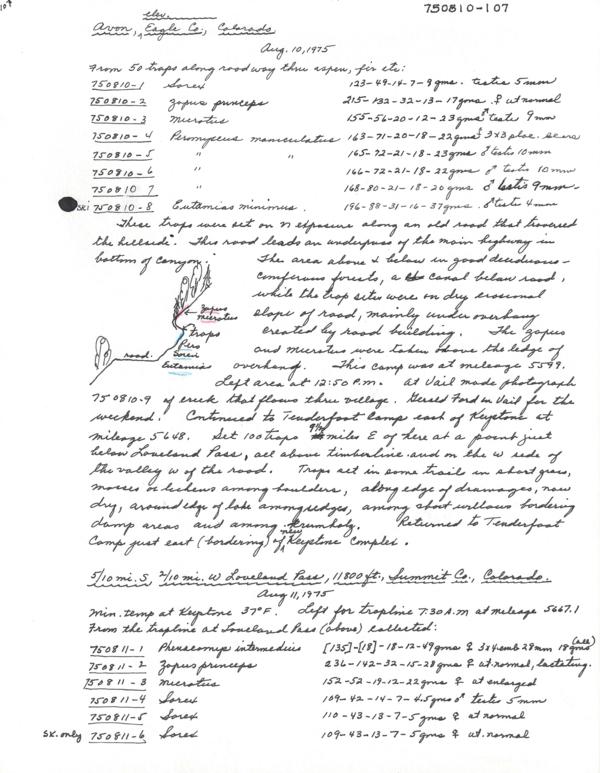 107
750810-107
elev.
Avon, Eagle Co., Colorado
Aug. 10, 1975
From 50 traps along roadway thru aspen, fir etc:
750810-1 Sorex 123-49-14-7-9 gms. testis 5 mm
750810-2 Zapus princeps 215-132-32-13-17 gms. ♀ ut normal
750810-3 Microtus 155-56-20-12-23 gms ♂ testis 9 mm
750810-4 Peromyscus maniculatus 163-71-20-18-22 gms ♀ 3x3 plac. scars
750810-5 " " 165-72-21-18-23 gms ♂ testis 10 mm
750810-6 " 166-72-21-18-22 gms ♂ testis 10 mm
750810 7 " 168-80-21-18-20 gms ♂ testis 9 mm-
SKi 750810-8 Eutamias minimus. 196-88-31-16-37 gms. ♂ testis 4 mm
These traps were set on N exposure along an old road that traversed
the hillside. This road leads an underpass of the main highway in
bottom of canyon. The area above & below in good deciduous-
coniferous forests, a canal below road,
while the trap sites were on dry erosional
slope of road, mainly under overhang
created by road building. The Zapus
and Microtus were taken above the ledge of
overhang. This camp was at mileage 5599.
Zapus
Microtus
traps
Pero
Sorex
Eutamias
road
Left area at 12:50 P.M. At Vail made photograph
750810-9 of creek that flows thru village. Gerald Ford in Vail for the
weekend. Continued to Tenderfoot Camp east of Keystone at
mileage 5648. Set 100 traps 9½ miles E of here at a point just
below Loveland Pass, all above timberline and on the W side of
the valley W of the road. Traps set in some trail in short grass,
mosses or lichens among boulders, along edge of drainages, now
dry, around edge of lake among sedges, among short willows bordering
damp areas and among Krumholz. Returned to Tenderfoot
Camp just east (bordering) of new Keystone complex.
5/10 mi. S, 2/10 mi. W Loveland Pass, 11800 ft., Summit Co., Colorado.
Aug 11, 1975
Min. temp at Keystone 37°F. Left for trapline 7:30 A.M at mileage 5667.1
From the trapline at Loveland Pass (above) collected:
750811-1 Phenacomys intermedius [135]-[18]-18-12-49 gms ♀ 3x4 emb 28 mm 18 gms (all)
750811-2 Zapus princeps 236-142-32-15-28 gms ♀ ut. normal, lactating.
750811-3 Microtus 152-52-19-12-22 gms ♀ ut enlarged
750811-4 Sorex 109-42-14-7-4.5 gms ♂ testis 5 mm
750811-5 Sorex 110-43-13-7-5 gms ♀ ut normal
SK. only 750811-6 Sorex 109-43-13-7-5 gms ♀ ut. normal